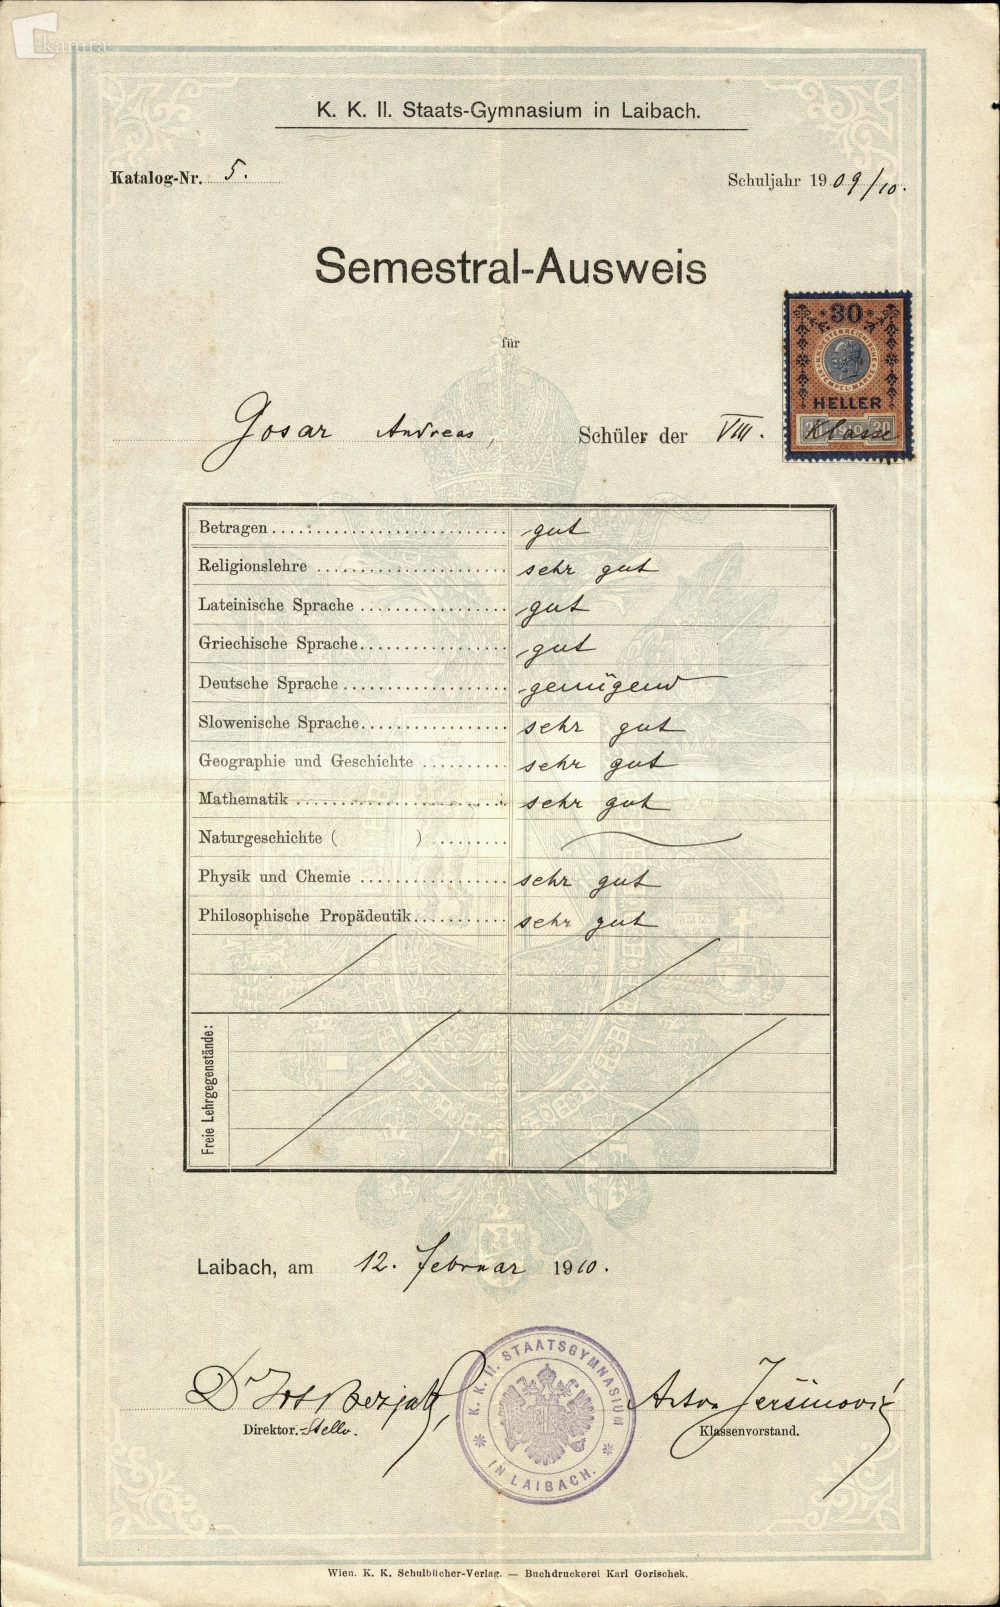 kamra
K. K. II. Staats-Gymnasium in Laibach.
Katalog-Nr. 5. Schuljahr 1909/10.
Semestral-Ausweis
für
30
K.K. OESTERREICHISCHE STEMPEL-MARKE
HELLER
30 1910 30
Gosar Andreas, Schüler der VIII. Klasse
Betragen gut
Religionslehre sehr gut
Lateinische Sprache gut
Griechische Sprache gut
Deutsche Sprache genügend
Slowenische Sprache sehr gut
Geographie und Geschichte sehr gut
Mathematik sehr gut
Naturgeschichte ( )
Physik und Chemie sehr gut
Philosophische Propädeutik sehr gut
Freie Lehrgegenstände:
Laibach, am 12. Februar 1910.
K. K. II. STAATSGYMNASIUM
* IN LAIBACH. *
Dr Jos Bezjak, Anton Jeršinovič
Direktor.-Stellv. Klassenvorstand.
Wien. K. K. Schulbücher-Verlag. — Buchdruckerei Karl Gorischek.